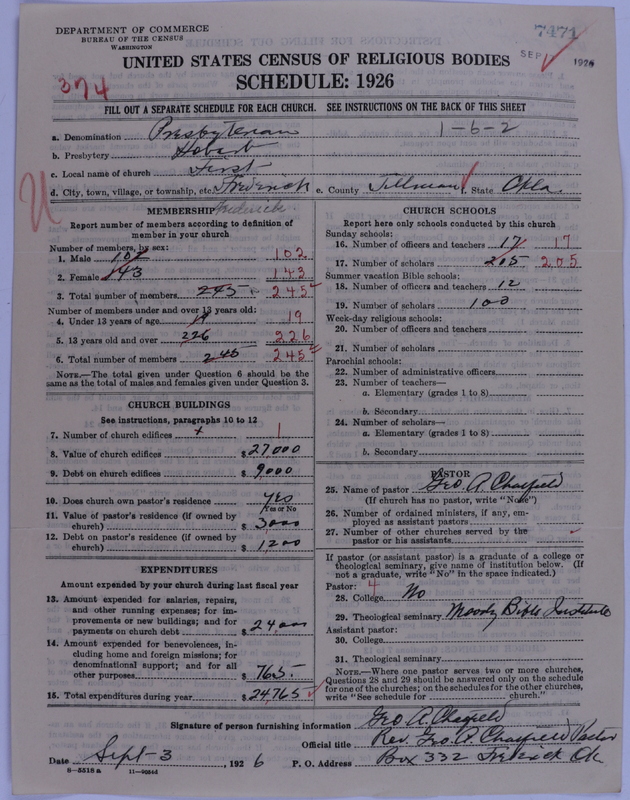 DEPARTMENT OF COMMERCE
BUREAU OF THE CENSUS
WASHINGTON
7471
SEP 1926
UNITED STATES CENSUS OF RELIGIOUS BODIES
SCHEDULE: 1926
374
FILL OUT A SEPARATE SCHEDULE FOR EACH CHURCH. SEE INSTRUCTIONS ON THE BACK OF THIS SHEET
a. Denomination Presbyterian 1-6-2
b. Presbytery Hobart
c. Local name of church First
d. City, town, village, or township, etc. Frederick e. County Tillman State Okla.
Frederick
MEMBERSHIP
Report number of members according to definition of
member in your church
Number of members, by sex:
1. Male 102 102
2. Female 143 143
3. Total number of members 245 245
Number of members under and over 13 years old:
4. Under 13 years of age 19 19
5. 13 years old and over 226 226
6. Total number of members 245 245
NOTE.—The total given under Question 6 should be the
same as the total of males and females given under Question 3.
CHURCH BUILDINGS
See instructions, paragraphs 10 to 12
7. Number of church edifices 1
8. Value of church edifices $ 27000
9. Debt on church edifices $ 9000
10. Does church own pastor's residence Yes
Yes or No
11. Value of pastor's residence (if owned by
church) $ 3000
12. Debt on pastor's residence (if owned by
church) $ 1200
EXPENDITURES
Amount expended by your church during last fiscal year
13. Amount expended for salaries, repairs,
and other running expenses; for im-
provements or new buildings; and for
payments on church debt $ 24,000
14. Amount expended for benevolences, in-
cluding home and foreign missions; for
denominational support; and for all
other purposes $ 765.
15. Total expenditures during year $ 24,765
CHURCH SCHOOLS
Report here only schools conducted by this church
Sunday schools:
16. Number of officers and teachers 17 17
17. Number of scholars 205 205
Summer vacation Bible schools:
18. Number of officers and teachers 12
19. Number of scholars 100
Week-day religious schools:
20. Number of officers and teachers
21. Number of scholars
Parochial schools:
22. Number of administrative officers
23. Number of teachers—
a. Elementary (grades 1 to 8)
b. Secondary
24. Number of scholars—
a. Elementary (grades 1 to 8)
b. Secondary
PASTOR
25. Name of pastor Geo A. Chatfield
(If church has no pastor, write "None")
26. Number of ordained ministers, if any, em-
ployed as assistant pastors
27. Number of other churches served by the
pastor or his assistants
If pastor (or assistant pastor) is a graduate of a college or
theological seminary, give name of institution below. (If
not a graduate, write "No" in the space indicated.)
Pastor: 4
28. College No
29. Theological seminary Moody Bible Institute
Assistant pastor:
30. College
31. Theological seminary
NOTE.—Where one pastor serves two or more churches,
Questions 28 and 29 should be answered only on the schedule
for one of the churches; on the schedules for the other churches,
write "See schedule for church."
Signature of person furnishing information Geo A. Chatfield
Official title Rev. Geo. A. Chatfield Pastor
Date Sept-3 1926 P. O. Address Box 332 Frederick Ok
8—5518 a